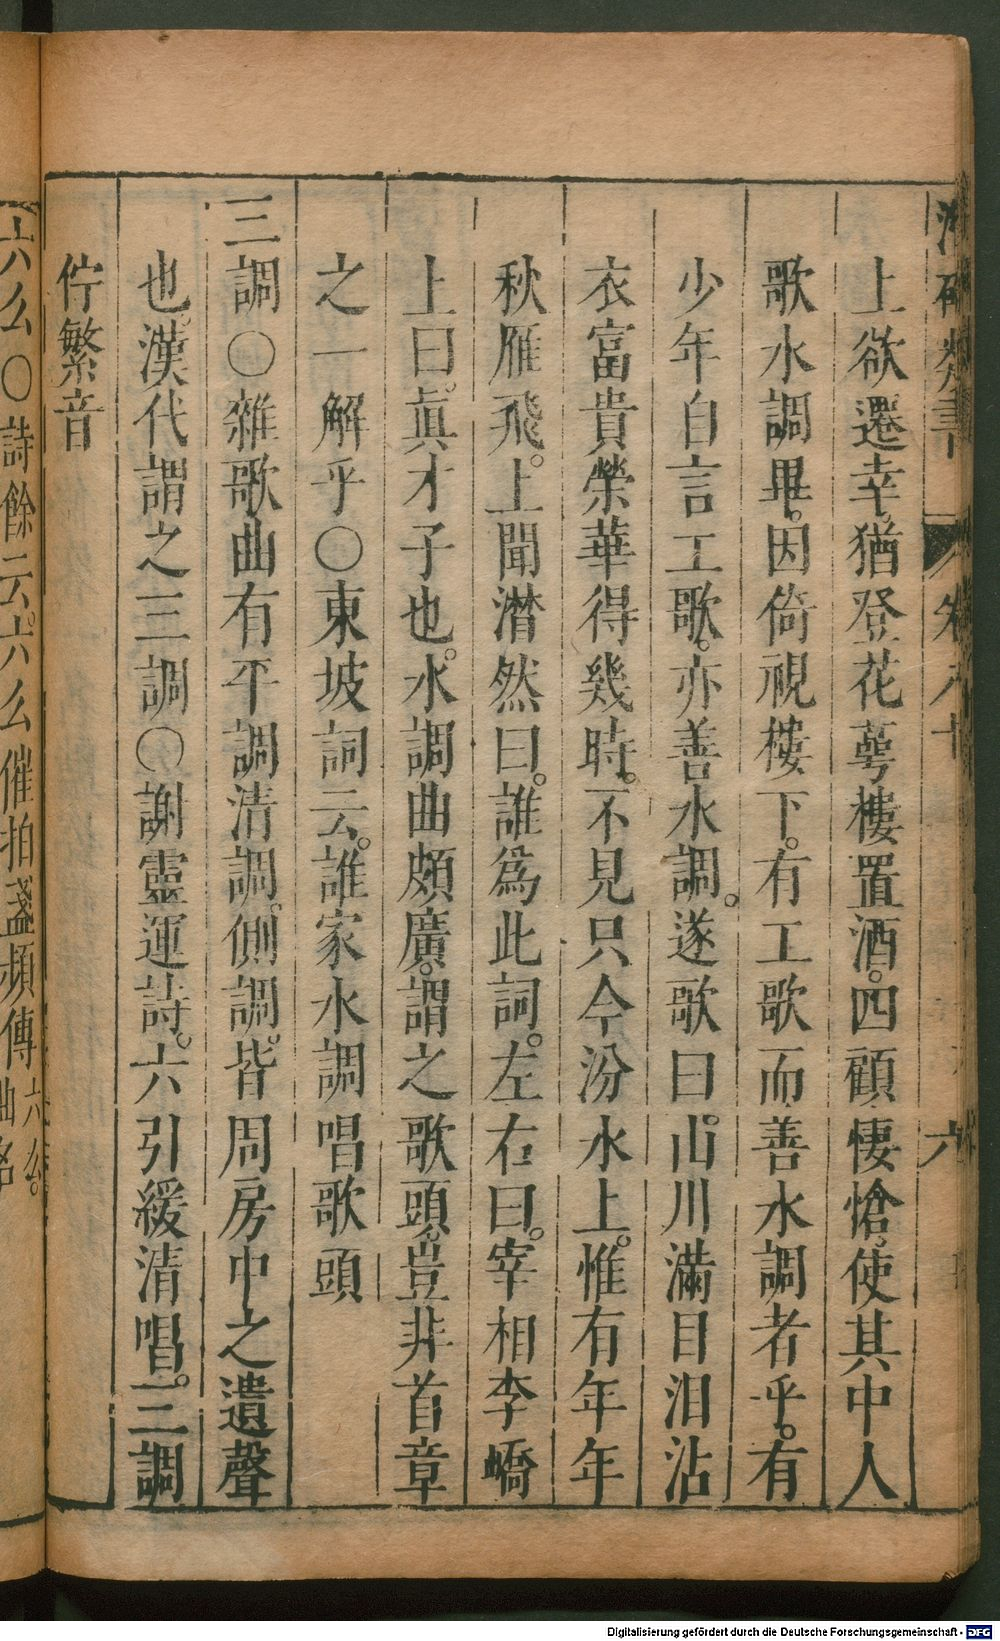 潛確類書 卷八十 六
上欲遷幸。猶登花萼樓置酒。四顧悽愴。使其中人
歌水調畢。因倚視樓下。有工歌而善水調者乎。有
少年自言工歌。亦善水調。遂歌曰。山川滿目淚沾
衣富貴榮華得幾時。不見只今汾水上。惟有年年
秋雁飛。上聞潸然曰。誰爲此詞。左右曰。宰相李嶠
上曰。眞才子也。水調曲頗廣。謂之歌頭。豈非首章
之一解乎〇東坡詞云。誰家水調唱歌頭
三調〇雜歌曲有平調清調。側調。皆周房中之遺聲
也。漢代謂之三調〇謝靈運詩。六引緩清唱。三調
佇繁音
六么〇詩餘云。六么催拍盞頻傳六么。曲名
Digitalisierung gefördert durch die Deutsche Forschungsgemeinschaft - DFG